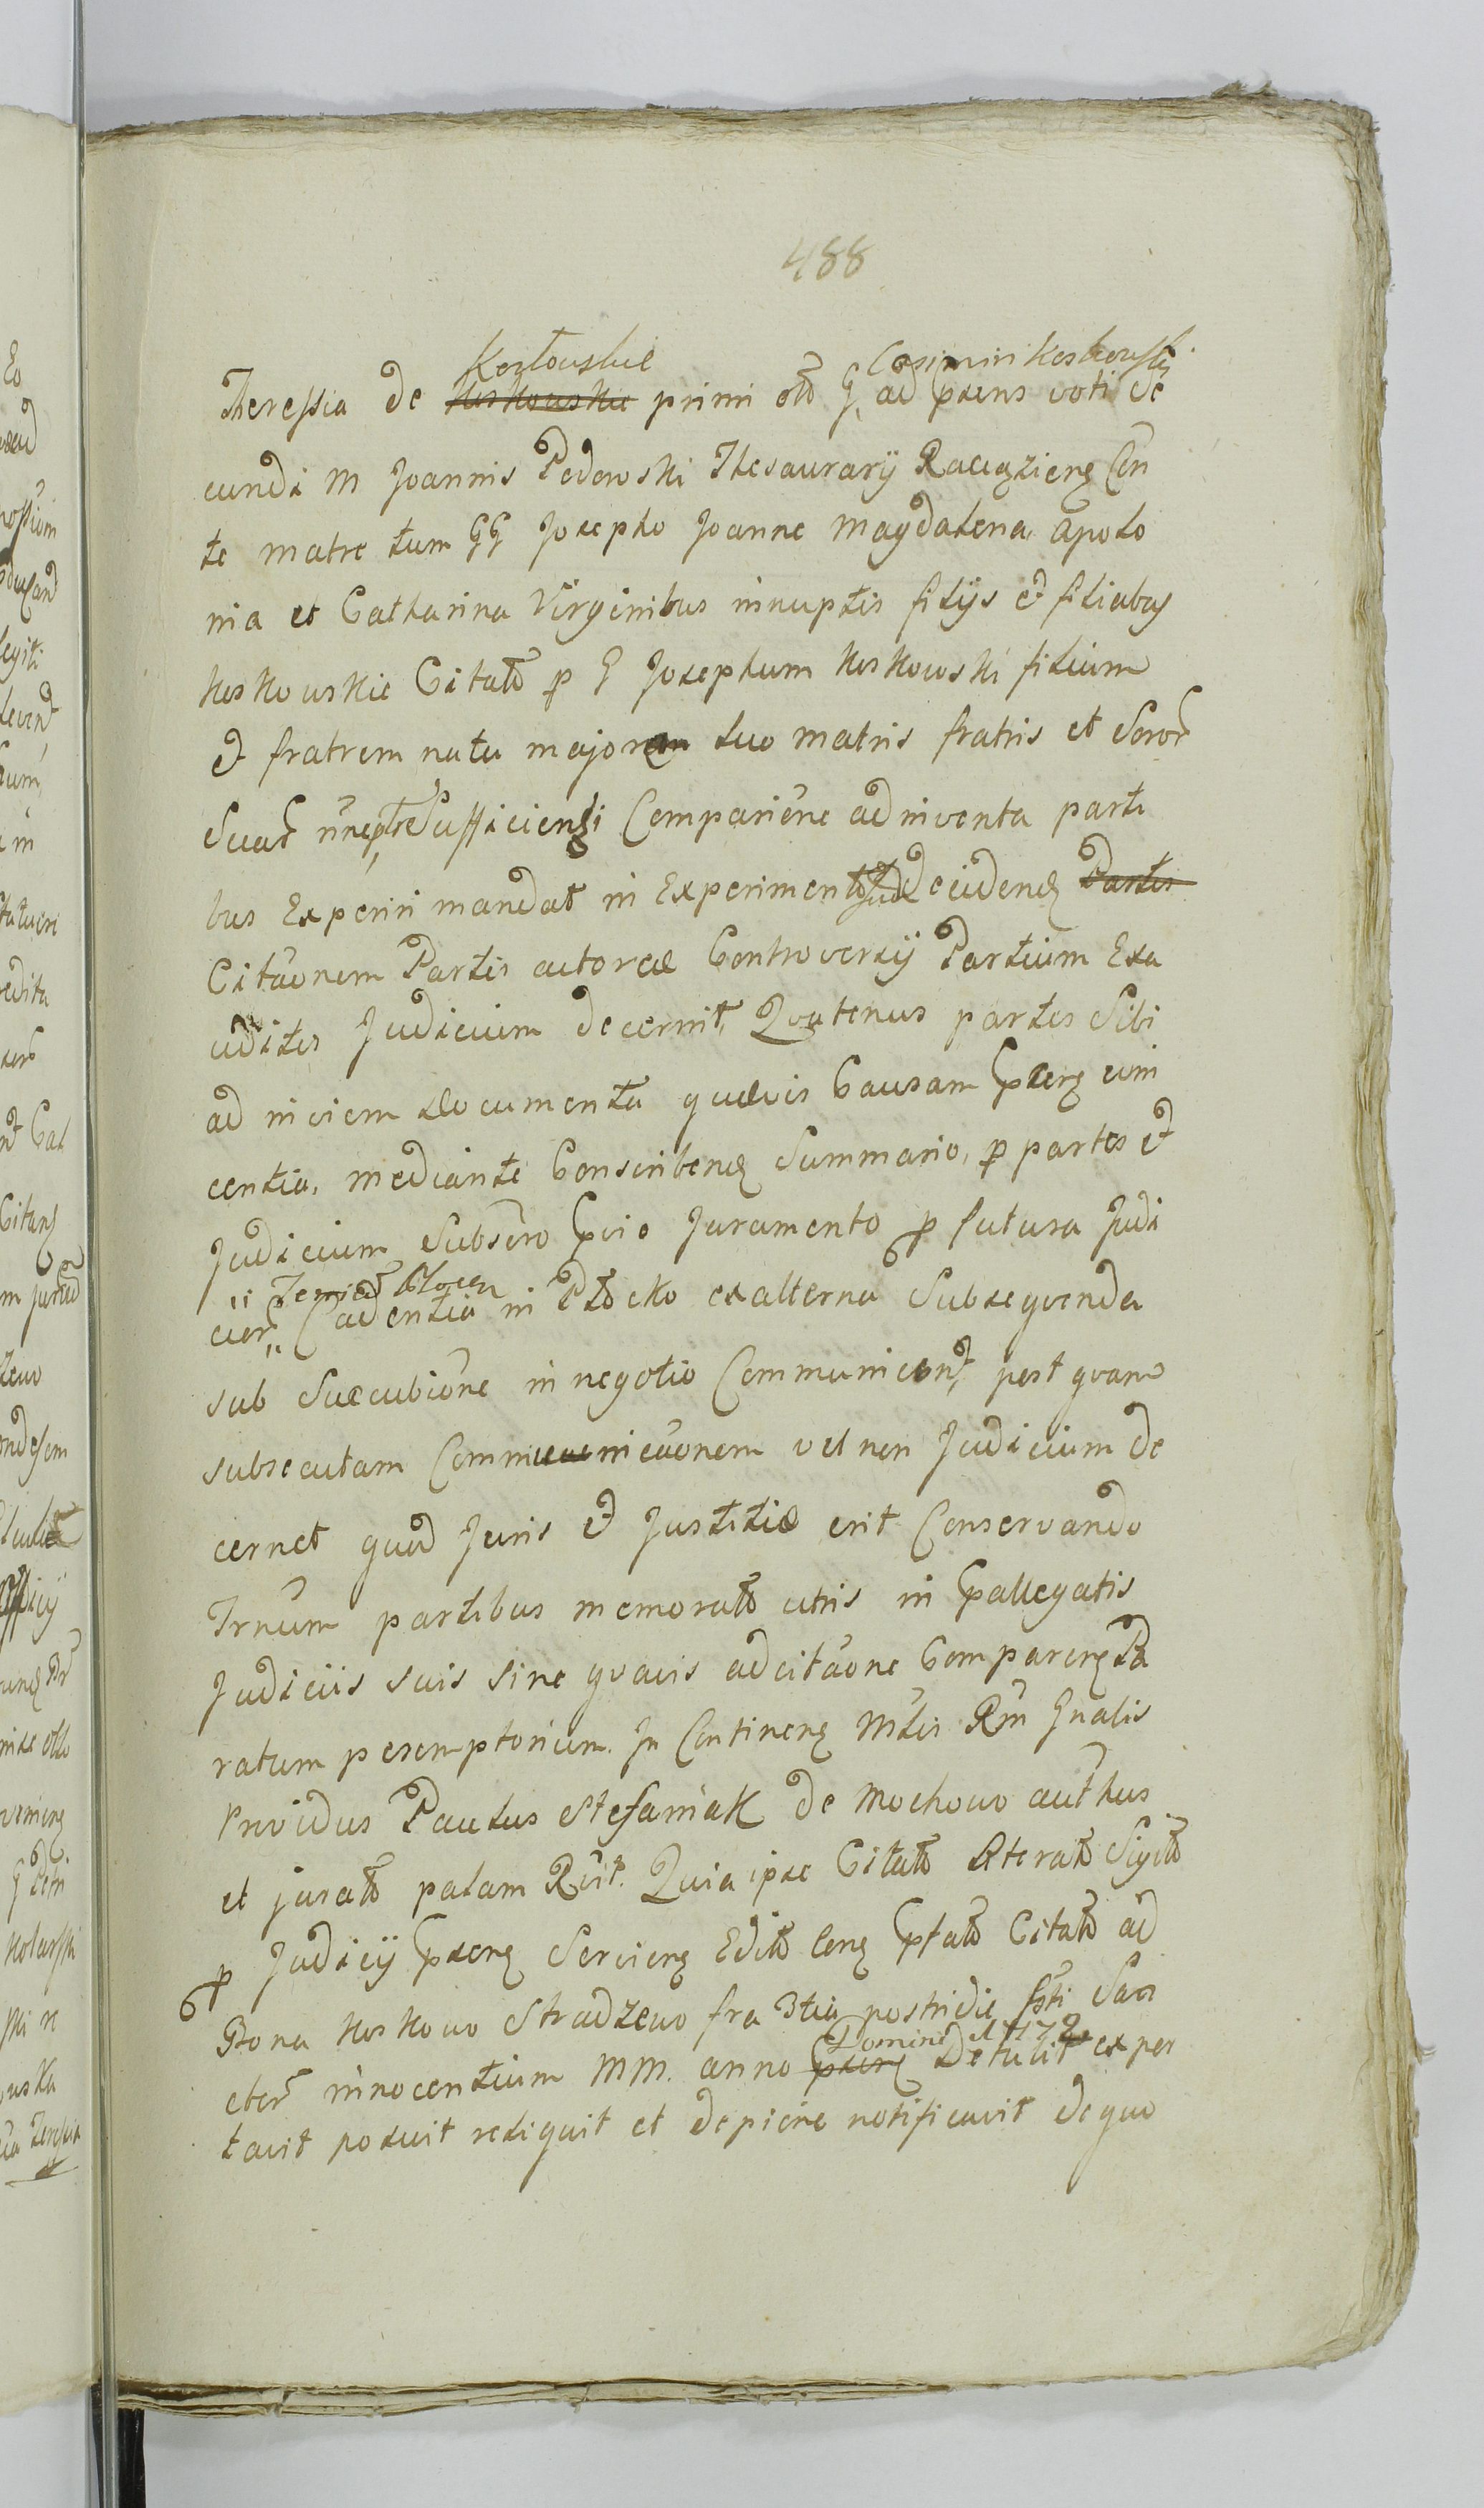 488
Kozłowskie Casimiri Koskowski
Theressia de Koskowskie primi olim G. ad praesens voti se
cundi M Joannis Pedowski Thesaurarij Raciążieng Con
te matre tum GG Josepho Joanne Magdalena Apolo
nia et Catharina Virginibus innuptis filijs et filiabus
Koskowskie Citato p G Josephum Koskowski filium
et fratrem natu majorem suo matris fratris et Soror
Suar Sufficienti Comparitione adinventa parti
bus Experiri mandat in Experimento decidend Partis
Citaonem Partis actoreae Controversij Partium Exa
uditis Judicium decernit, Quatenus partes Sibi
ad invicem documenta quaevis Causam praeseng cum
centia, mediante Conscribeng Summario, p partes et
Judicium Subscro pvio Juramento p futura Judi
Terrēs Plocen
cior Cadentia in Płocko ex alterna Subsequenda
sub Succubitione in negotio Communicent, post quam
subsecutam Communicaonem vel non Judicium de
cernet quid Juris et Justitiae erit Conservando
Trnum partibus memorato utris in pallegatis
Judiciis suis sine quavis adcitaone Compareng Pa
ratum peremptorium. In Contineng Mtis Rm Gnalis
Providus Paulus Stefaniak de Mochowo authus
et jurato palam Rvit. Quia ipse Citato literato Sigito
p Judicij praeseng Servieng Edito Ceng pfato Citato ad
Bona Koskowo Stradzewo fra 3tia postridie fsti San
Domini 1772
ctor innocentium MM. anno praeseng Detulit ex por
tavit posuit reliquit et depicione notificavit de quo